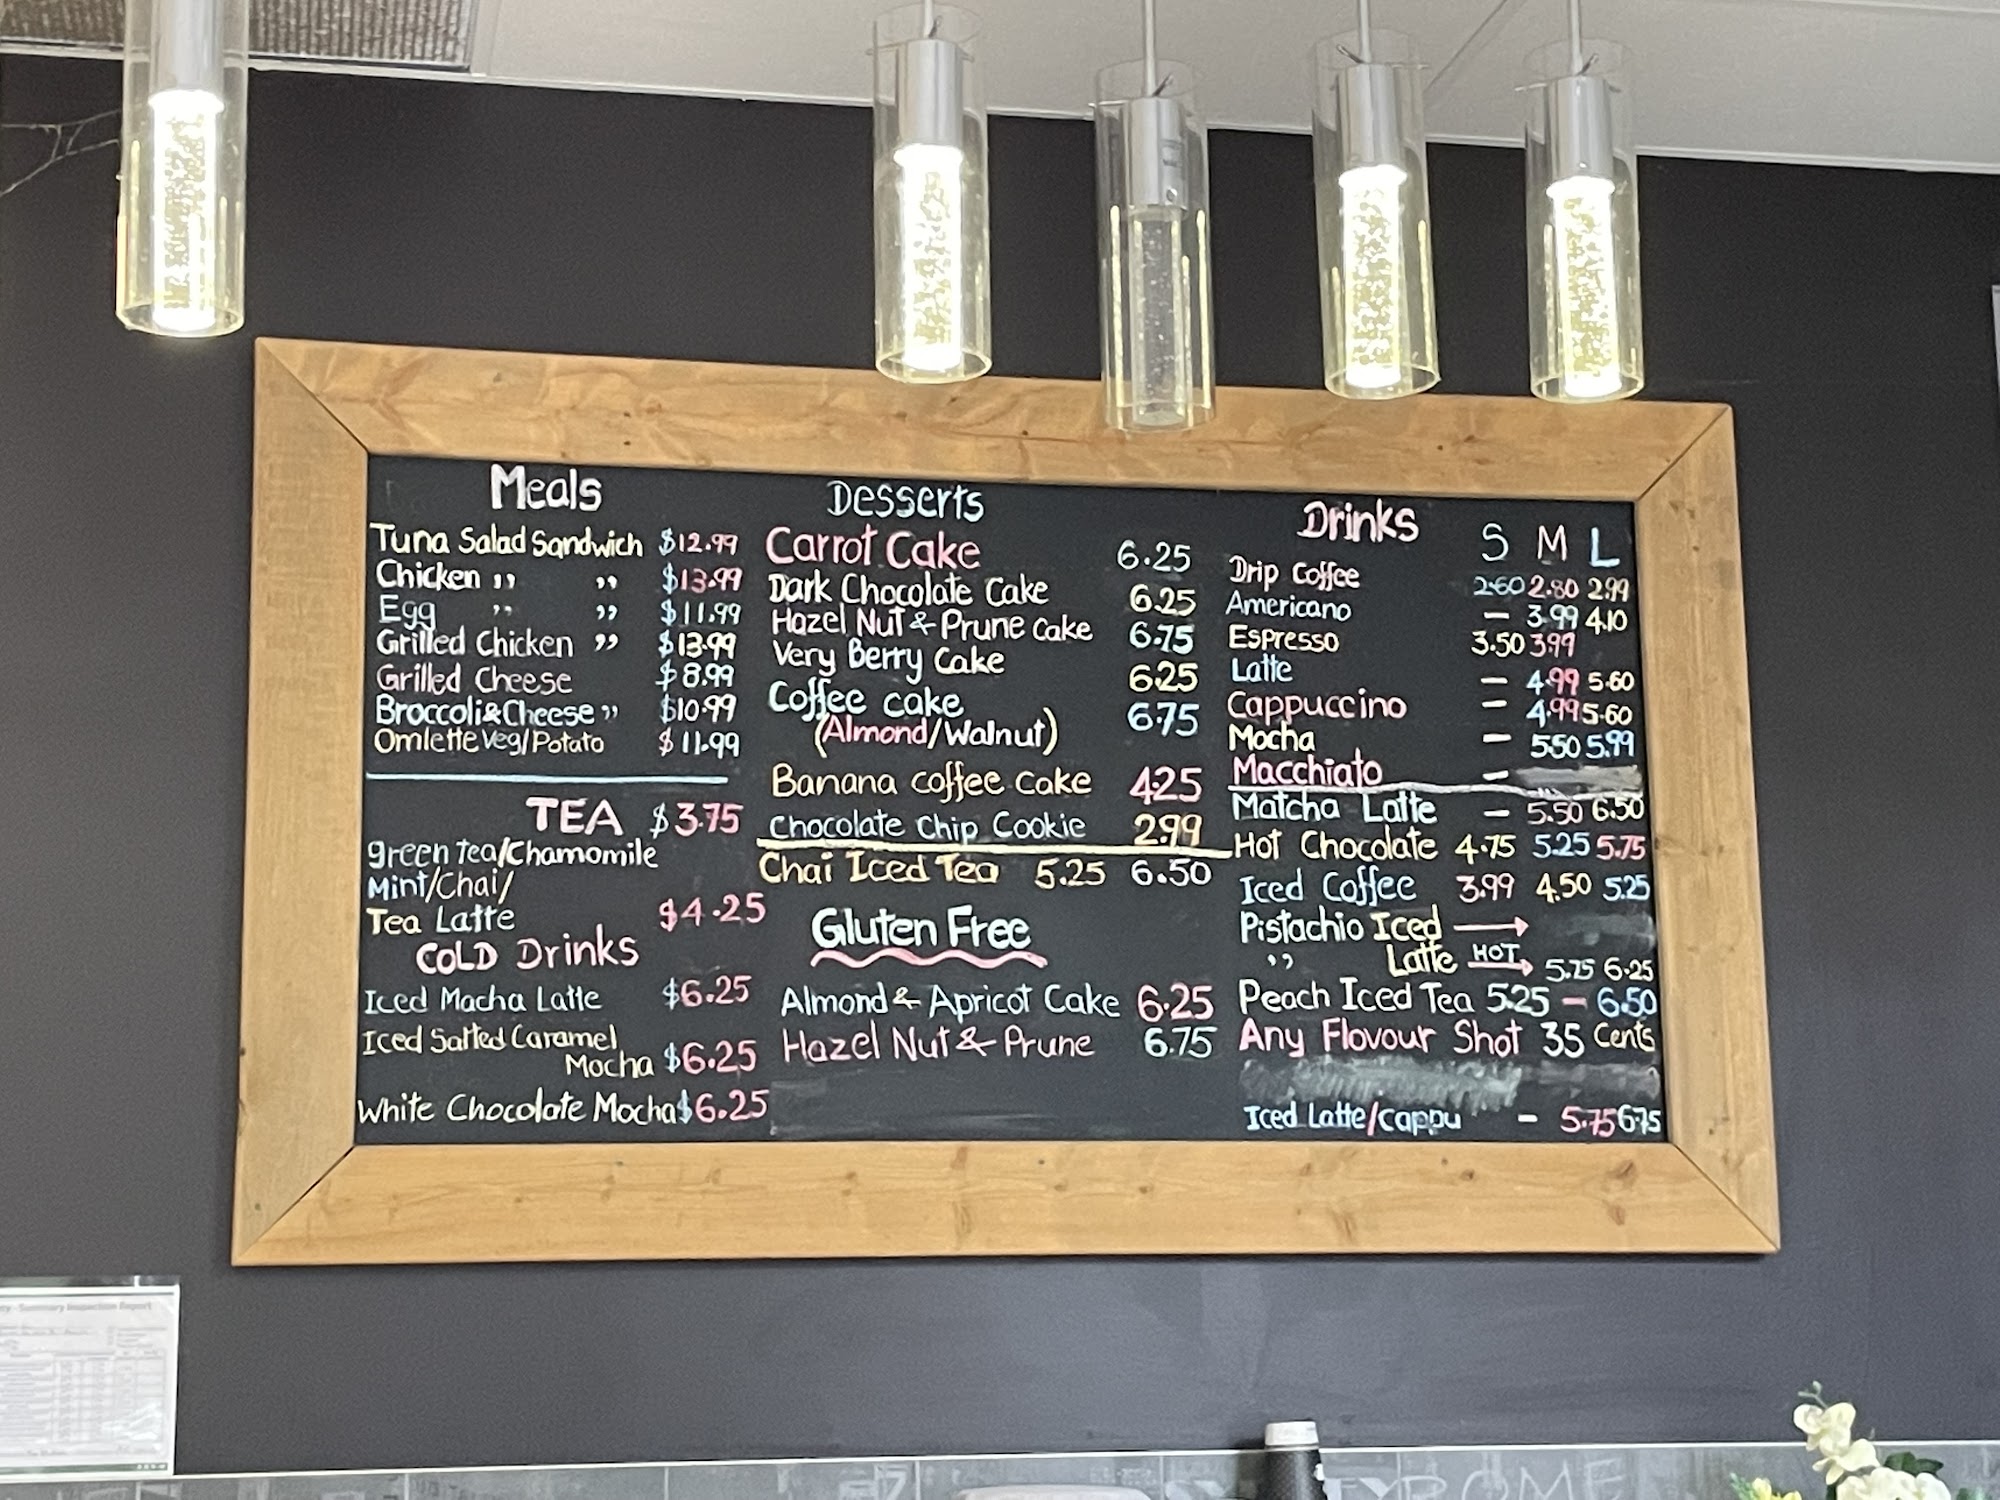 Meals
Tuna Salad Sandwich $12.99
Chicken ,, ,, $13.99
Egg ,, ,, $11.99
Grilled Chicken ,, $13.99
Grilled Cheese $8.99
Broccoli & Cheese ,, $10.99
Omlette Veg/Potato $11.99
TEA $3.75
green tea/Chamomile
Mint/Chai/
Tea Latte $4.25
COLD Drinks
Iced Macha Latte $6.25
Iced Salted Caramel
Mocha $6.25
White Chocolate Mocha $6.25
Desserts
Carrot Cake 6.25
Dark Chocolate Cake 6.25
Hazel Nut & Prune Cake 6.75
Very Berry Cake 6.25
Coffee cake 6.75
(Almond/Walnut)
Banana coffee cake 4.25
Chocolate Chip Cookie 2.99
Chai Iced Tea 5.25 6.50
Gluten Free
Almond & Apricot Cake 6.25
Hazel Nut & Prune 6.75
Drinks S M L
Drip Coffee 2.60 2.80 2.99
Americano – 3.99 4.10
Espresso 3.50 3.99
Latte – 4.99 5.60
Cappuccino – 4.99 5.60
Mocha – 5.50 5.99
Macchiato –
Matcha Latte – 5.50 6.50
Hot Chocolate 4.75 5.25 5.75
Iced Coffee 3.99 4.50 5.25
Pistachio Iced →
,, Latte HOT → 5.75 6.25
Peach Iced Tea 5.25 – 6.50
Any Flavour Shot 35 Cents
Iced Latte/cappu – 5.75 6.75
Summary Inspection Report